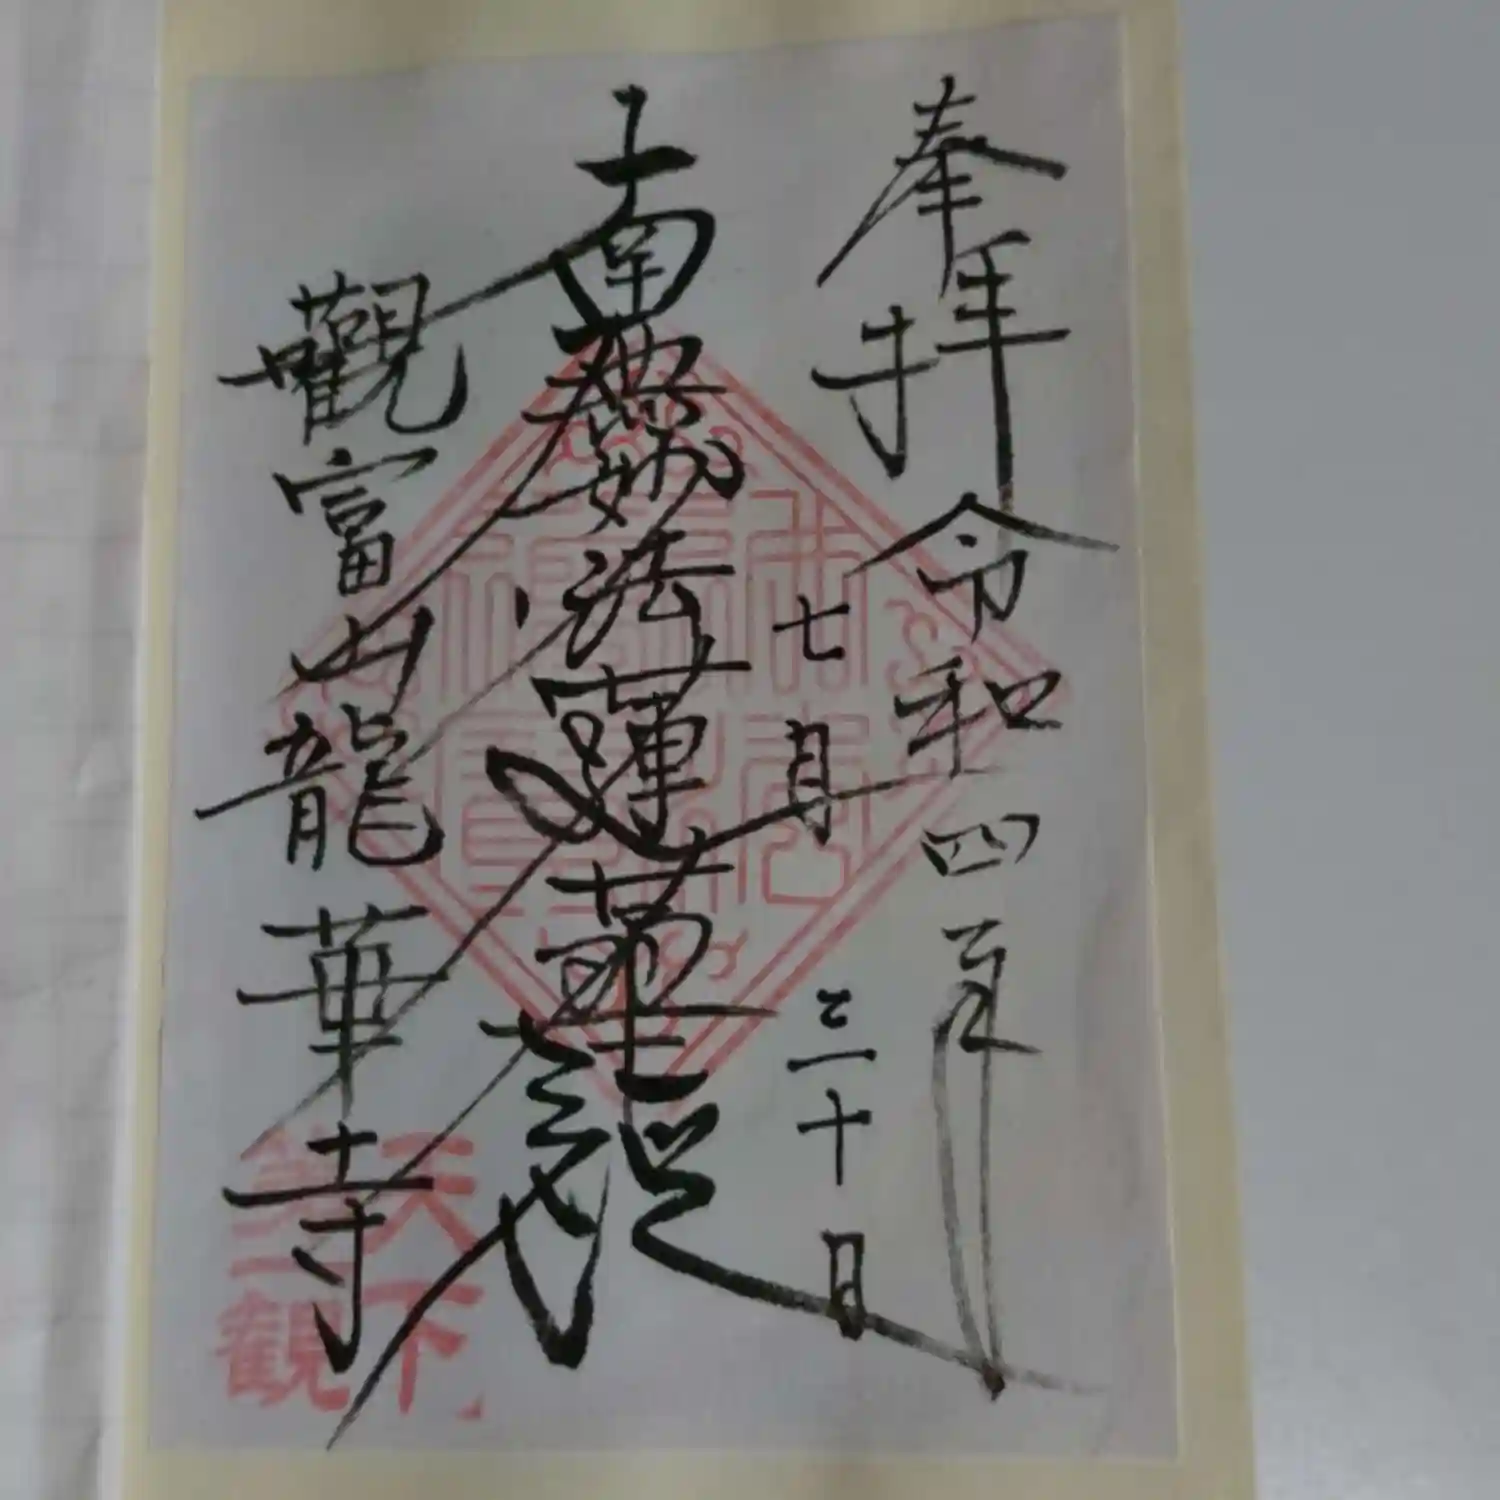 奉拝
令和四年
七月三十日
南無妙法蓮華経
觀富山龍華寺
天下
観